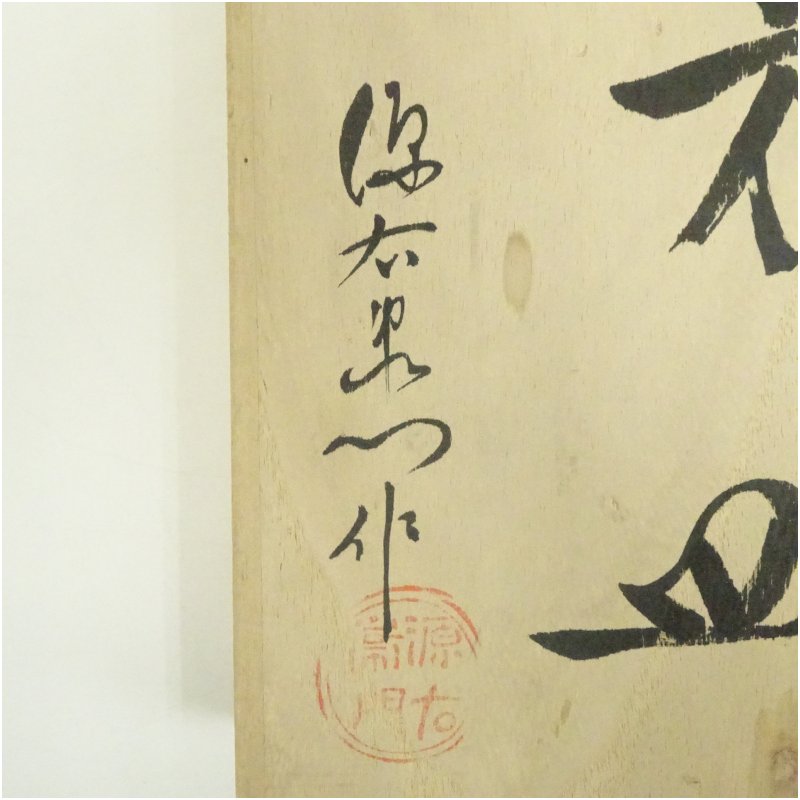 皿
源右衛門作
源右衛門